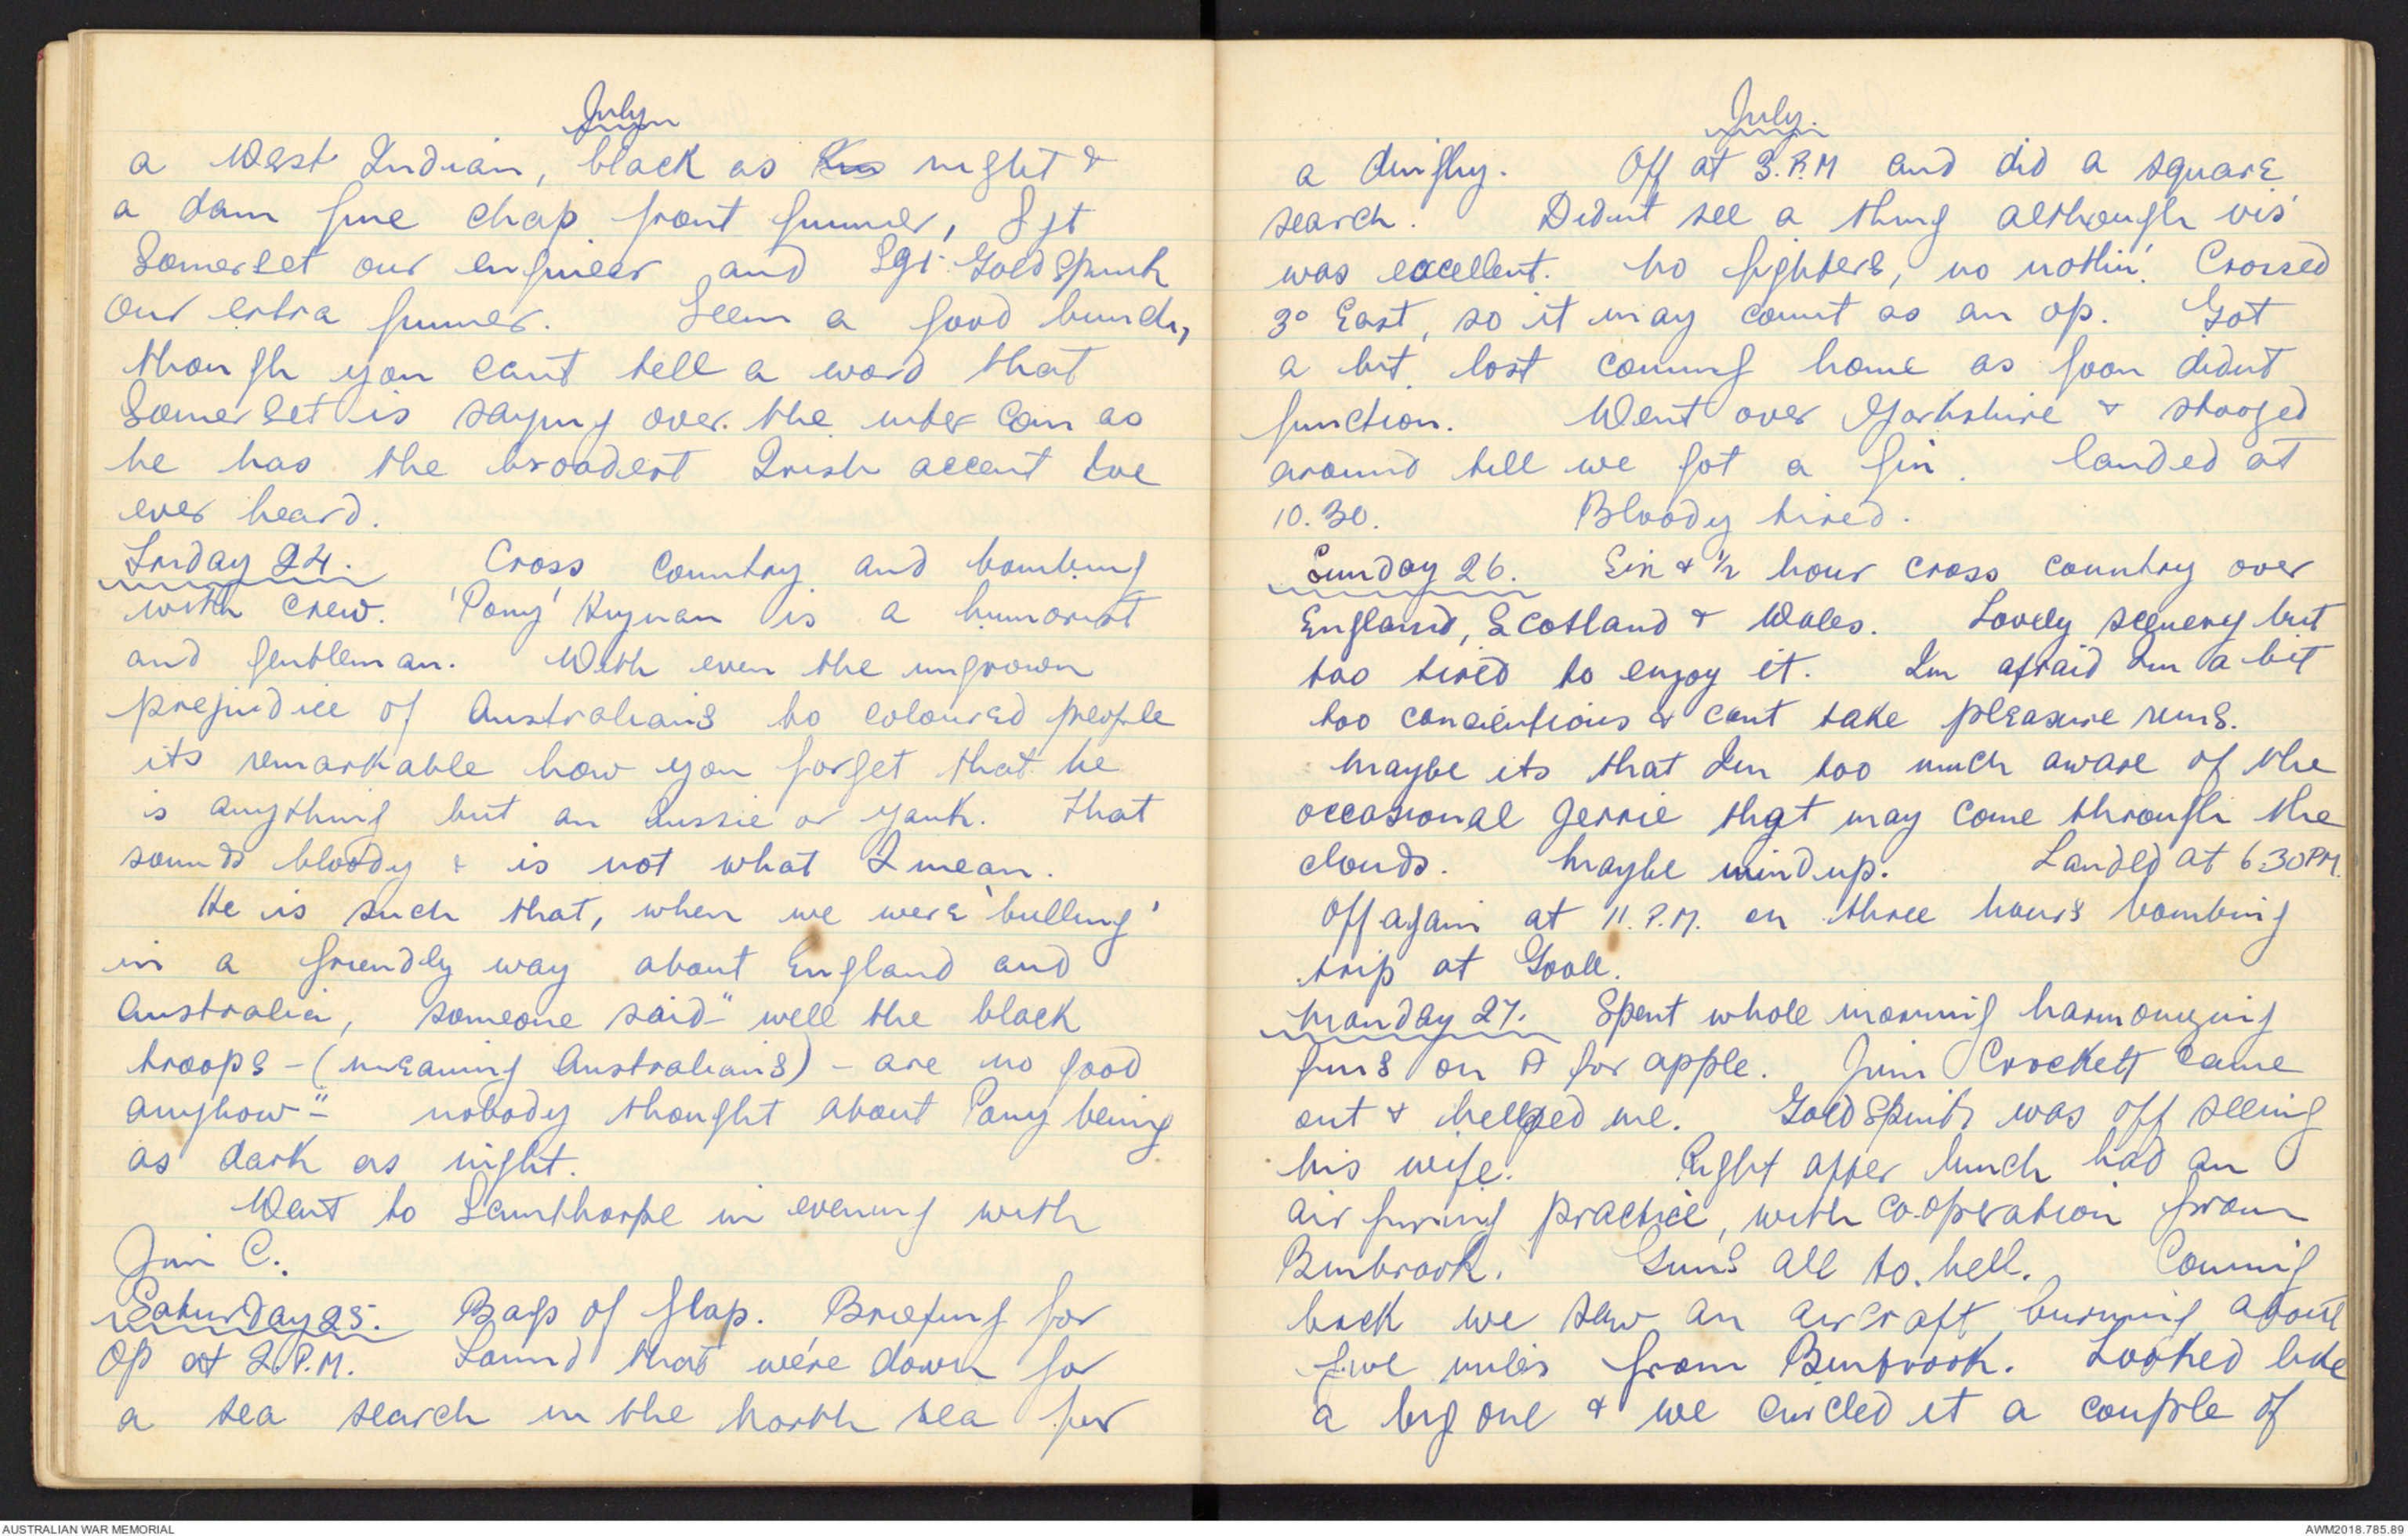 July
a West Indian, black as night &
a dam fine chap front gunner, Sgt
Somerset our engineer and Sgt Goldspink
our extra gunner. Seem a good bunch,
though you cant tell a word that
Somerset is saying over the inter com as
he has the broadest Irish accent Ive
ever heard.
Friday 24. Cross country and bombing
with crew. 'Pony' Hynan is a humorist
and gentleman. With even the ingrown
prejudice of Australians to coloured people
its remarkable how you forget that he
is anything but an Aussie or yank. That
sounds bloody & is not what I mean.
He is such that, when we were 'bulling'
in a friendly way about England and
Australia, someone said "well the black
troops - (meaning Australians) - are no good
anyhow" - nobody thought about Pony being
as dark as night.
Went to Scunthorpe in evening with
Jim C.
Saturday 25. Bags of flap. Briefing for
op at 2.P.M. Found that we're down for
a sea search in the North sea for
July.
a dinghy. Off at 3.P.M and did a square
search. Didnt see a thing although vis'
was excellent. No fighters, no nothin'. Crossed
3° East, so it may count as an op. Got
a bit lost coming home as goon didnt
function. Went over Yorkshire & stooged
around till we got a fix. Landed at
10.30. Bloody tired.
Sunday 26. Six & ½ hour cross country over
England, Scotland & Wales. Lovely scenery but
too tired to enjoy it. Im afraid Im a bit
too concientious & cant take pleasure runs.
Maybe its that Im too much aware of the
occasional Jerrie that may come through the
clouds. Maybe wind up. Landed at 6.30PM.
Off again at 11.P.M. on three hours bombing
trip at Goole.
Monday 27. Spent whole morning harmonizing
guns on A for apple. Jim Crockett came
out & helped me. Goldspink was off seeing
his wife. Right after lunch had an
air firing practice, with co-operation from
Binbrook. Guns all to hell. Coming
back we saw an aircraft burning about
five miles from Binbrook. Looked like
a big one & we circled it a couple of
AUSTRALIAN WAR MEMORIAL
AWM2018.785.89